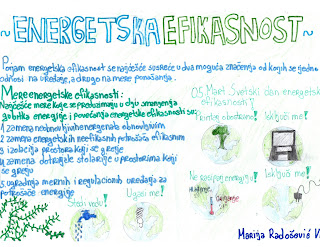 ~ENERGETSKA EFIKASNOST~
Pojam energetska efikasnost se najčešće susreće u dva moguća značenja od kojih se jedno
odnosi na uređaje, a drugo na mere ponašanja.
Mere energetske efikasnosti:
Najčešće mere koje se preduzimaju u cilju smanjenja
gubitka energije i povećanja energetske efikasnosti su:
1 zamena neobnovljivih energenata obnovljivim
2 zamena energetskih neefikasnih potrošača efikasnim
3 izolacija prostora koji se greje
4 zamena dotrajale stolarije u prostorima koji
se greju
5 ugradnja mernih i regulacionih uređaja za
potrošače energije
05. Mart. Svetski dan energetske
efikasnosti
Isključi me!
Isključi me!
Ne rasipaj energiju!
Hlađenje
Grejanje
Štedi vodu!
Ugasi me!
Marija Radošević V